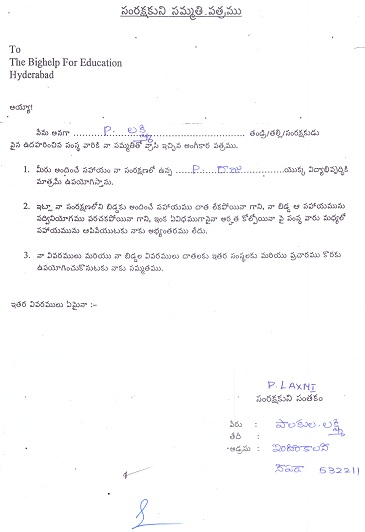 సంరక్షకుని సమ్మతి పత్రము
To
The Bighelp For Education
Hyderabad
అయ్యా!
నేను అనగా P. లక్ష్మి తండ్రి/తల్లి/సంరక్షకుడు
పైన ఉదహరించిన సంస్థ వారికి నా సమ్మతితో వ్రాసి ఇచ్చిన అంగీకార పత్రము.
1. మీరు అందించే సహాయం నా సంరక్షణలో ఉన్న P. రాజు యొక్క విద్యాభివృద్ధికి
మాత్రమే ఉపయోగిస్తాను.
2. ఇట్లా నా సంరక్షణలోని బిడ్డకు అందించే సహాయము దాత లేకపోయినా గాని, నా బిడ్డ ఆ సహాయమును
సద్వినియోగము పరచకపోయినా గాని, ఇంక ఏవిధముగానైనా అర్హత కోల్పోయినా పై సంస్థ వారు మధ్యలో
సహాయమును ఆపివేయుటకు నాకు అభ్యంతరము లేదు.
3. నా వివరములు మరియు నా బిడ్డల వివరములు దాతలకు ఇతర సంస్థలకు మరియు ప్రచారము కొరకు
ఉపయోగించుకొనుటకు నాకు సమ్మతము.
ఇతర వివరములు ఏమైనా :-
P. LAXMI
సంరక్షకుని సంతకం
పేరు : పాలకుల లక్ష్మి
తేది :
అడ్రసు :
532211